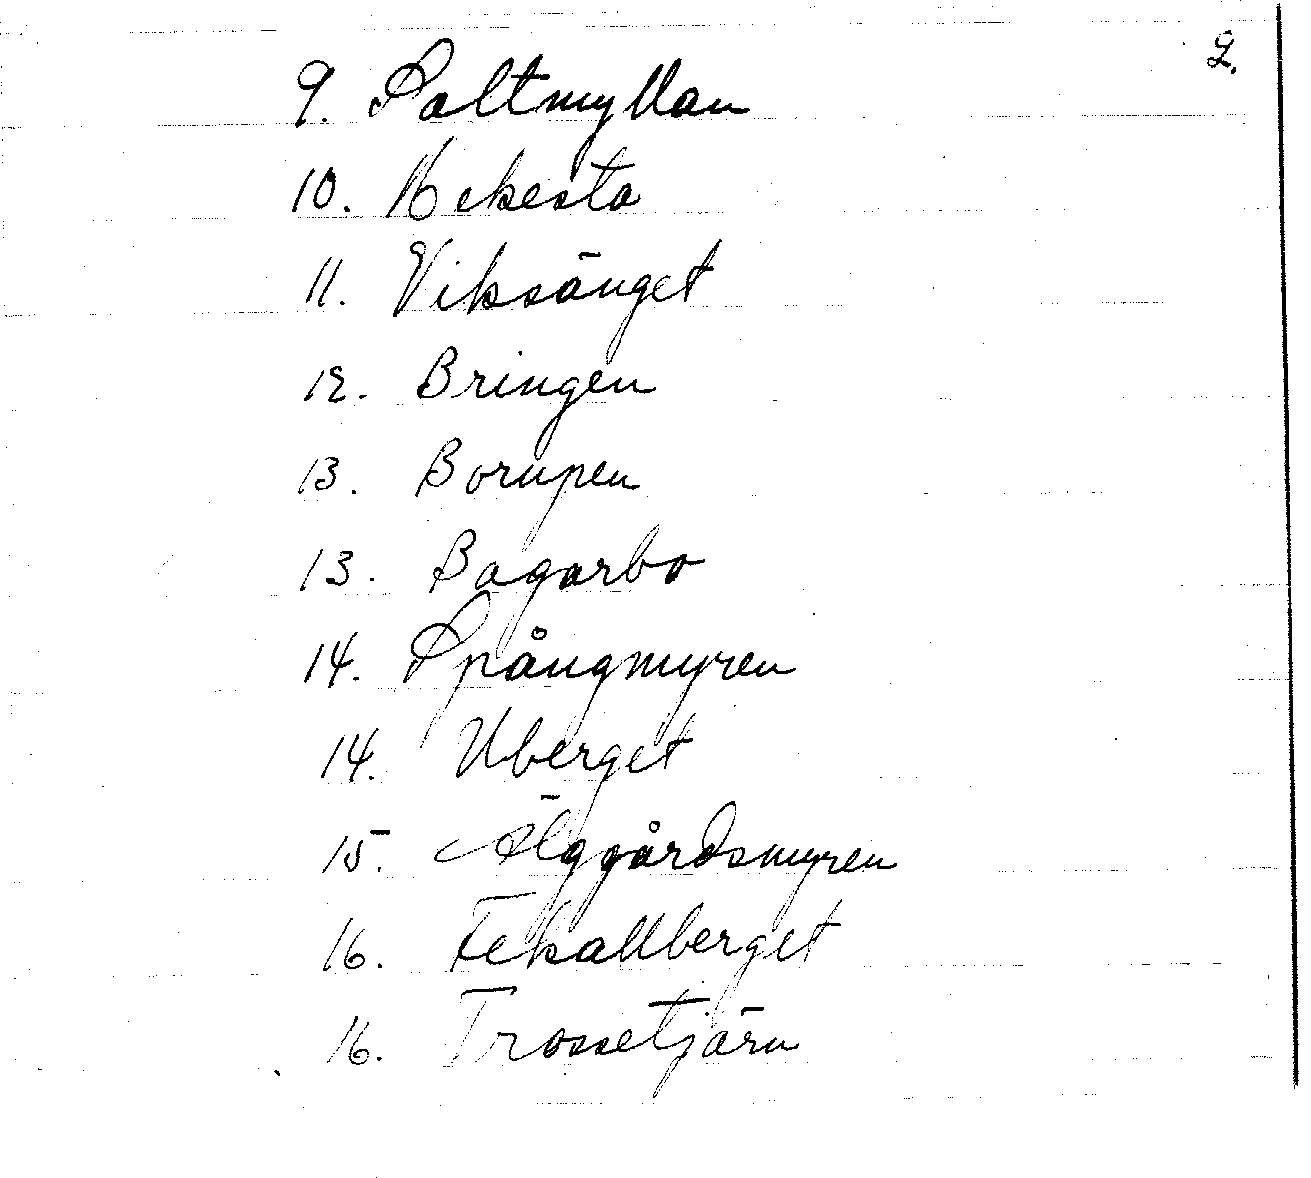 2.
9. Saltmyllan
10. Kekesta
11. Viksänget
12. Bringen
13. Borupen
13. Bagarbo
14. Spångmyren
14. Uberget
15. Älggårdsmyren
16. Fekallberget
16. Trossetjärn